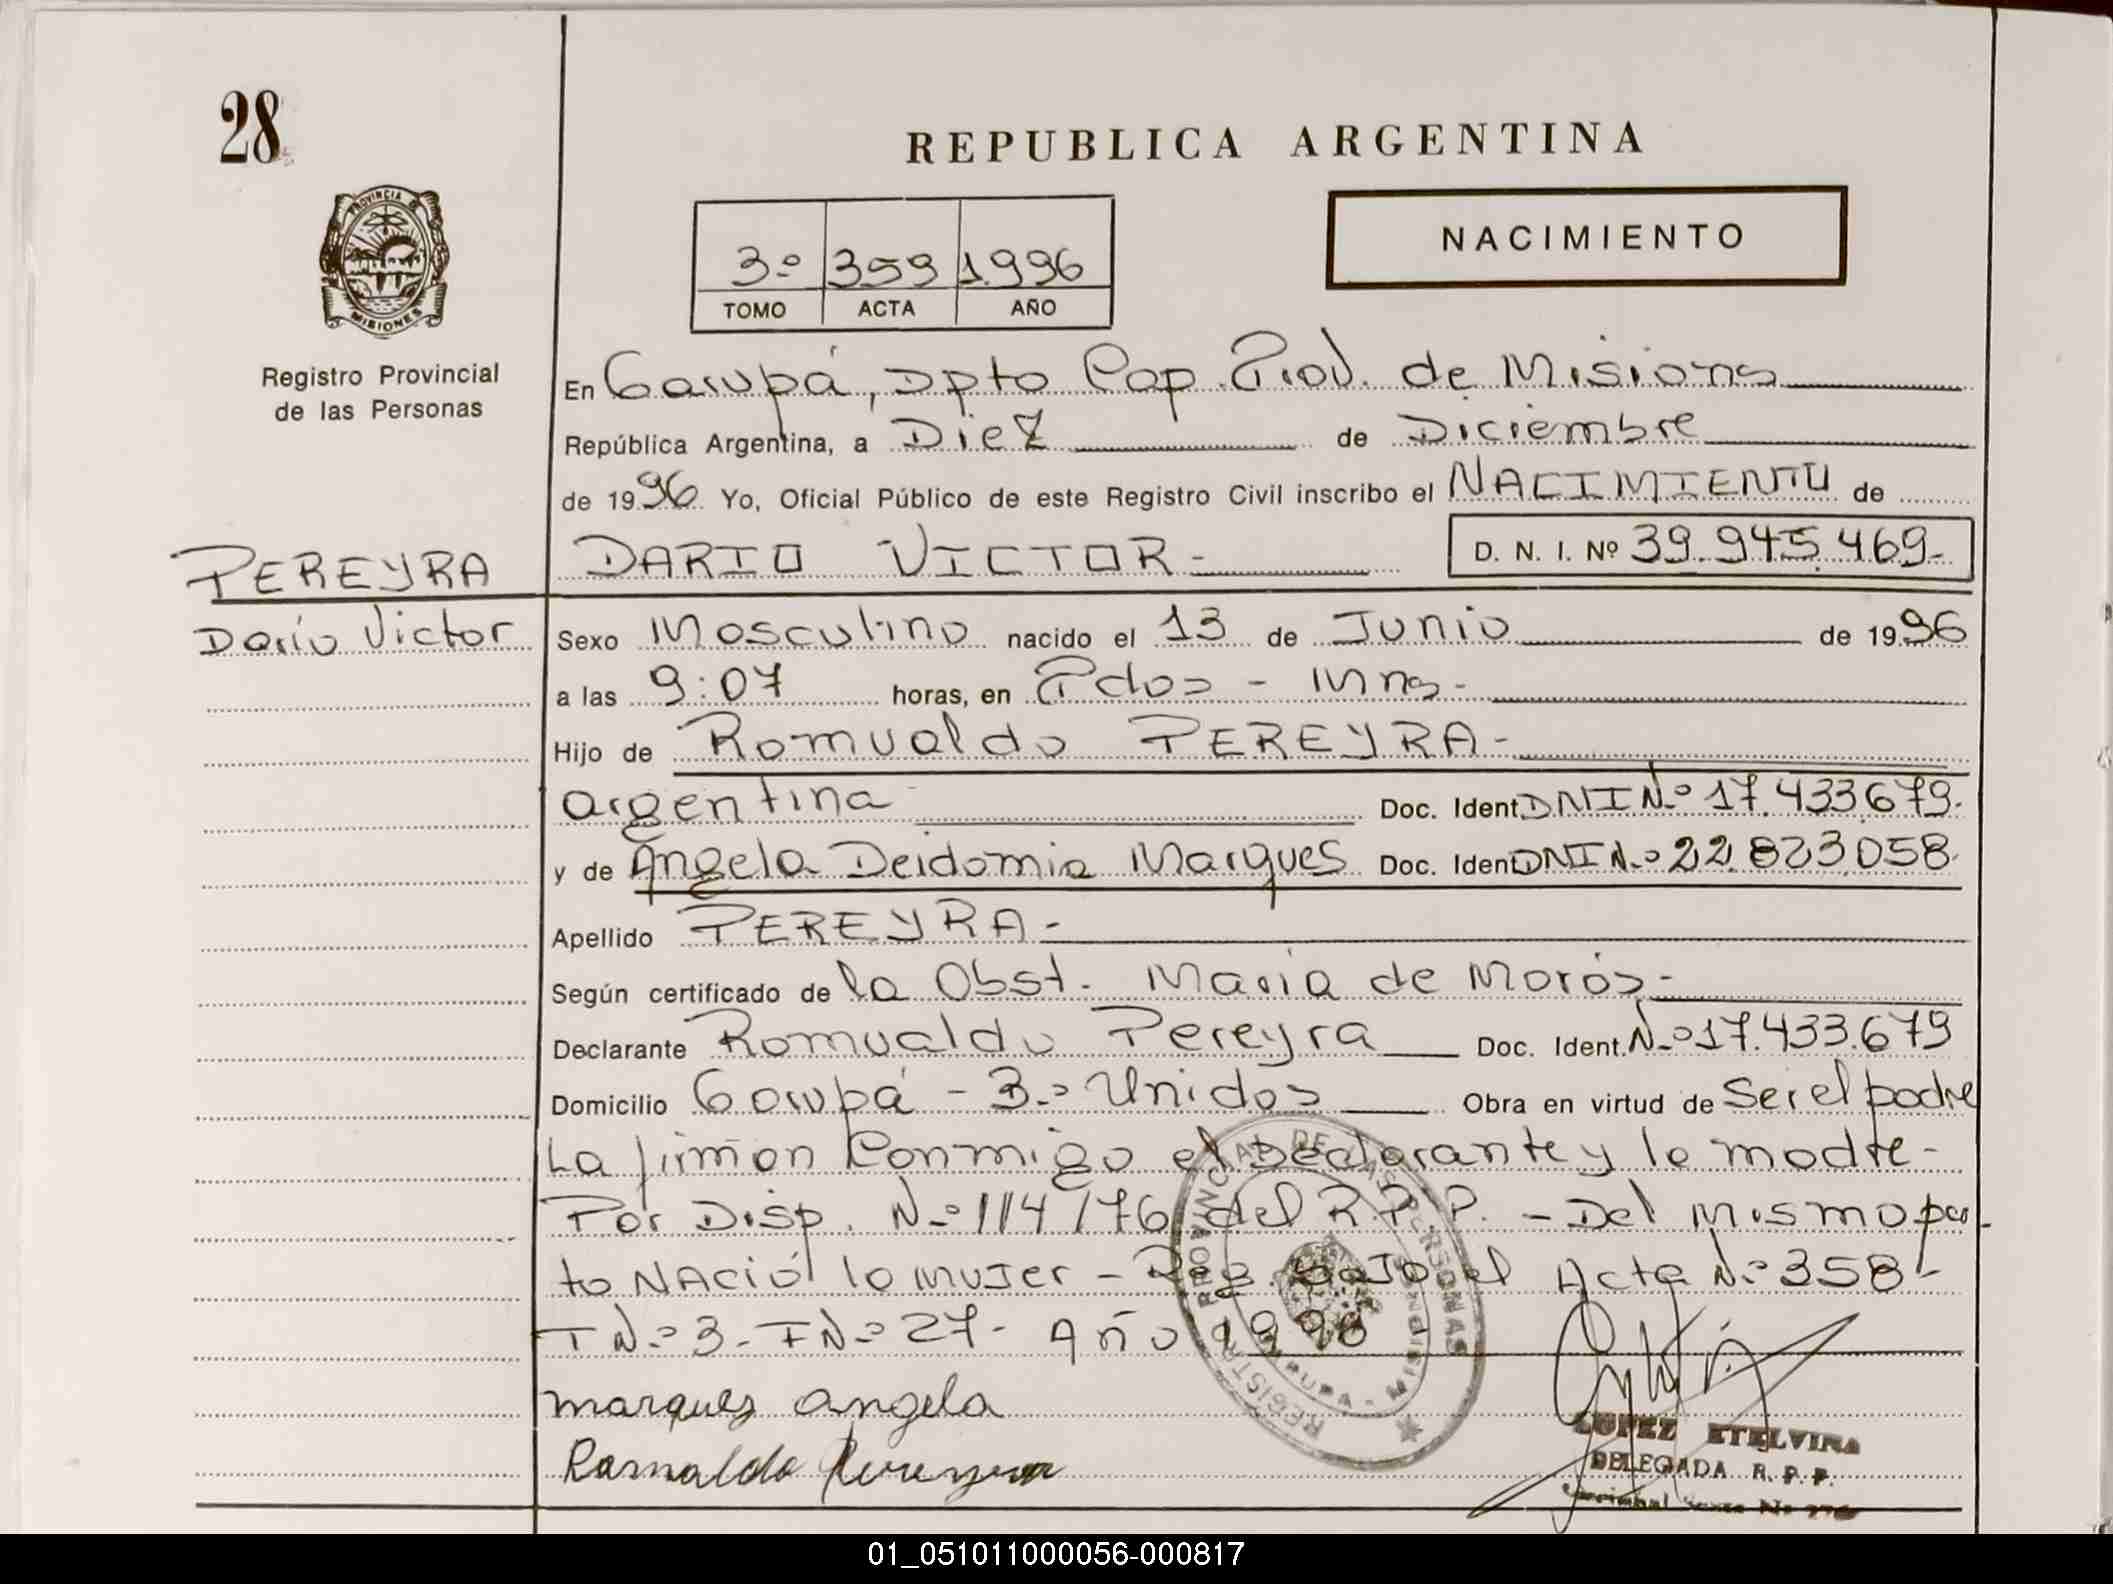 28
REPUBLICA ARGENTINA
PROVINCIA DE
MISIONES
Registro Provincial
de las Personas
3º 359 1996
TOMO ACTA AÑO
NACIMIENTO
En Garupá, Dpto Cap. Prov. de Misiones
República Argentina, a Diez de Diciembre
de 1996 Yo, Oficial Público de este Registro Civil inscribo el NACIMIENTO de
PEREYRA DARIO VICTOR- D. N. I. Nº 39.945.469-
Darío Victor
Sexo Masculino nacido el 13 de Junio de 1996
a las 9:07 horas, en Pdas - Mns-
Hijo de Romualdo PEREYRA-
argentina Doc. Ident. DNI Nº 17.433679-
y de Angela Deidomia Marques Doc. Ident DNI Nº 22.823.058-
Apellido PEREYRA-
Según certificado de la Obst. Maria de Morós-
Declarante Romualdo Pereyra Doc. Ident. Nº 17.433.679
Domicilio Garupá - Bº Unidos Obra en virtud de Ser el padre
La firman Conmigo el Declarante y la madre-
Por Disp. Nº 114/76 del R.P.P. - Del mismo par-
to NAció la mujer - Reg. bajo el Acta Nº 358-
T Nº 3- F Nº 27- Año 1996-
marques angela
Romaldo Pereyra
REGISTRO PROVINCIAL DE LAS PERSONAS
GARUPA - MISIONES
LOPEZ ETELVINA
DELEGADA R. P. P.
01_051011000056-000817